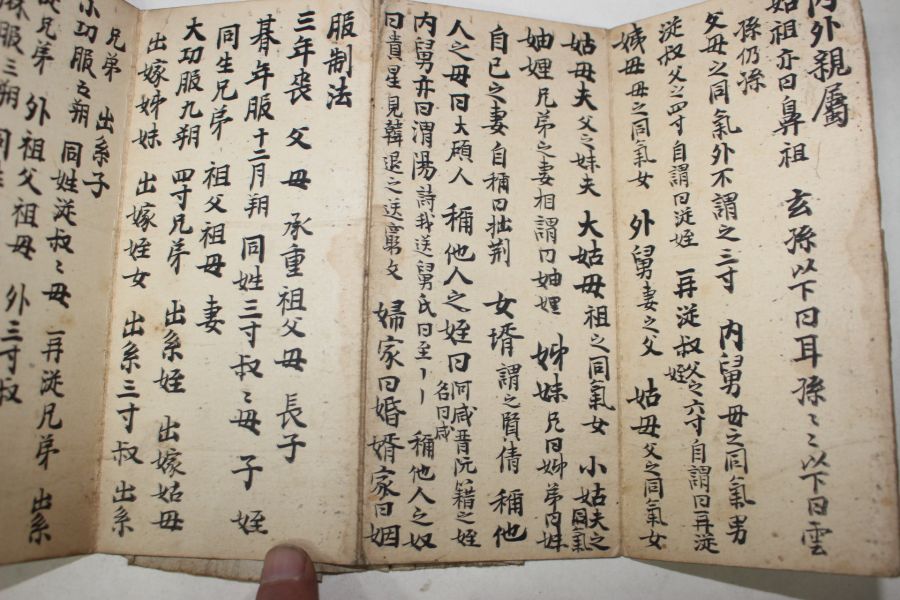 內外親屬
始祖亦曰鼻祖 玄孫以下曰耳孫〻〻以下曰雲
孫仍孫
父母之同氣外不謂之三寸 內舅母之同氣男
從叔父之四寸自謂曰從姪 再從叔父之六寸自謂曰再從
姪
姨母母之同氣女 外舅妻之父 姑母父之同氣女
姑母夫父之妹夫 大姑母祖之同氣女 小姑夫之同氣
妯娌兄弟之妻相謂曰妯娌 姊妹兄曰姊弟曰妹
自己之妻自稱曰拙荊 女壻謂之賢倩 稱他
人之母曰大碩人 稱他人之姪曰阿咸晋阮籍之姪
名曰咸
內舅亦曰渭陽詩我送舅氏曰至〻〻 稱他人之奴
曰貴星見韓退之送窮文 婦家曰婚婿家曰姻
服制法
三年喪 父母 承重祖父母 長子
朞年服十二月朔 同姓三寸叔〻母 子 姪
同生兄弟 祖父祖母 妻
大功服九朔 四寸兄弟 出系姪 出嫁姑母
出嫁姊妹 出嫁姪女 出系三寸叔 出系
兄弟 出系子
小功服五朔 同姓從叔〻母 再從兄弟 出系
從兄弟 外祖父祖母 外三寸叔
服三朔